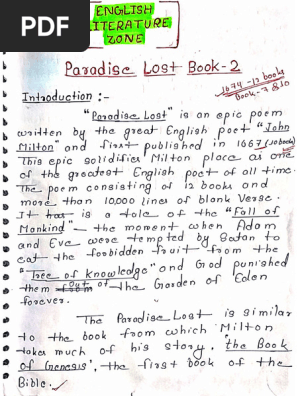 PDF
ENGLISH
LITERATURE
ZONE
Paradise Lost Book-2
1674-12 books
Introduction :-
"Paradise Lost" is an epic poem
written by the great English poet "John
Milton" and first published in 1667 (10 book)
This epic solidifies Milton place as one
of the greatest English poet of all time.
The poem consisting of 12 books and
more than 10,000 lines of blank verse.
It has is a tale of the "Fall of
Mankind" – the moment when Adam
and Eve were tempted by Satan to
eat the forbidden fruit from the
"Tree of Knowledge" and God punished
them out of the Garden of Eden
forever.
The Paradise Lost is similar
to the book from which Milton
takes much of his story, 'the Book
of Genesis', the first book of the
Bible.